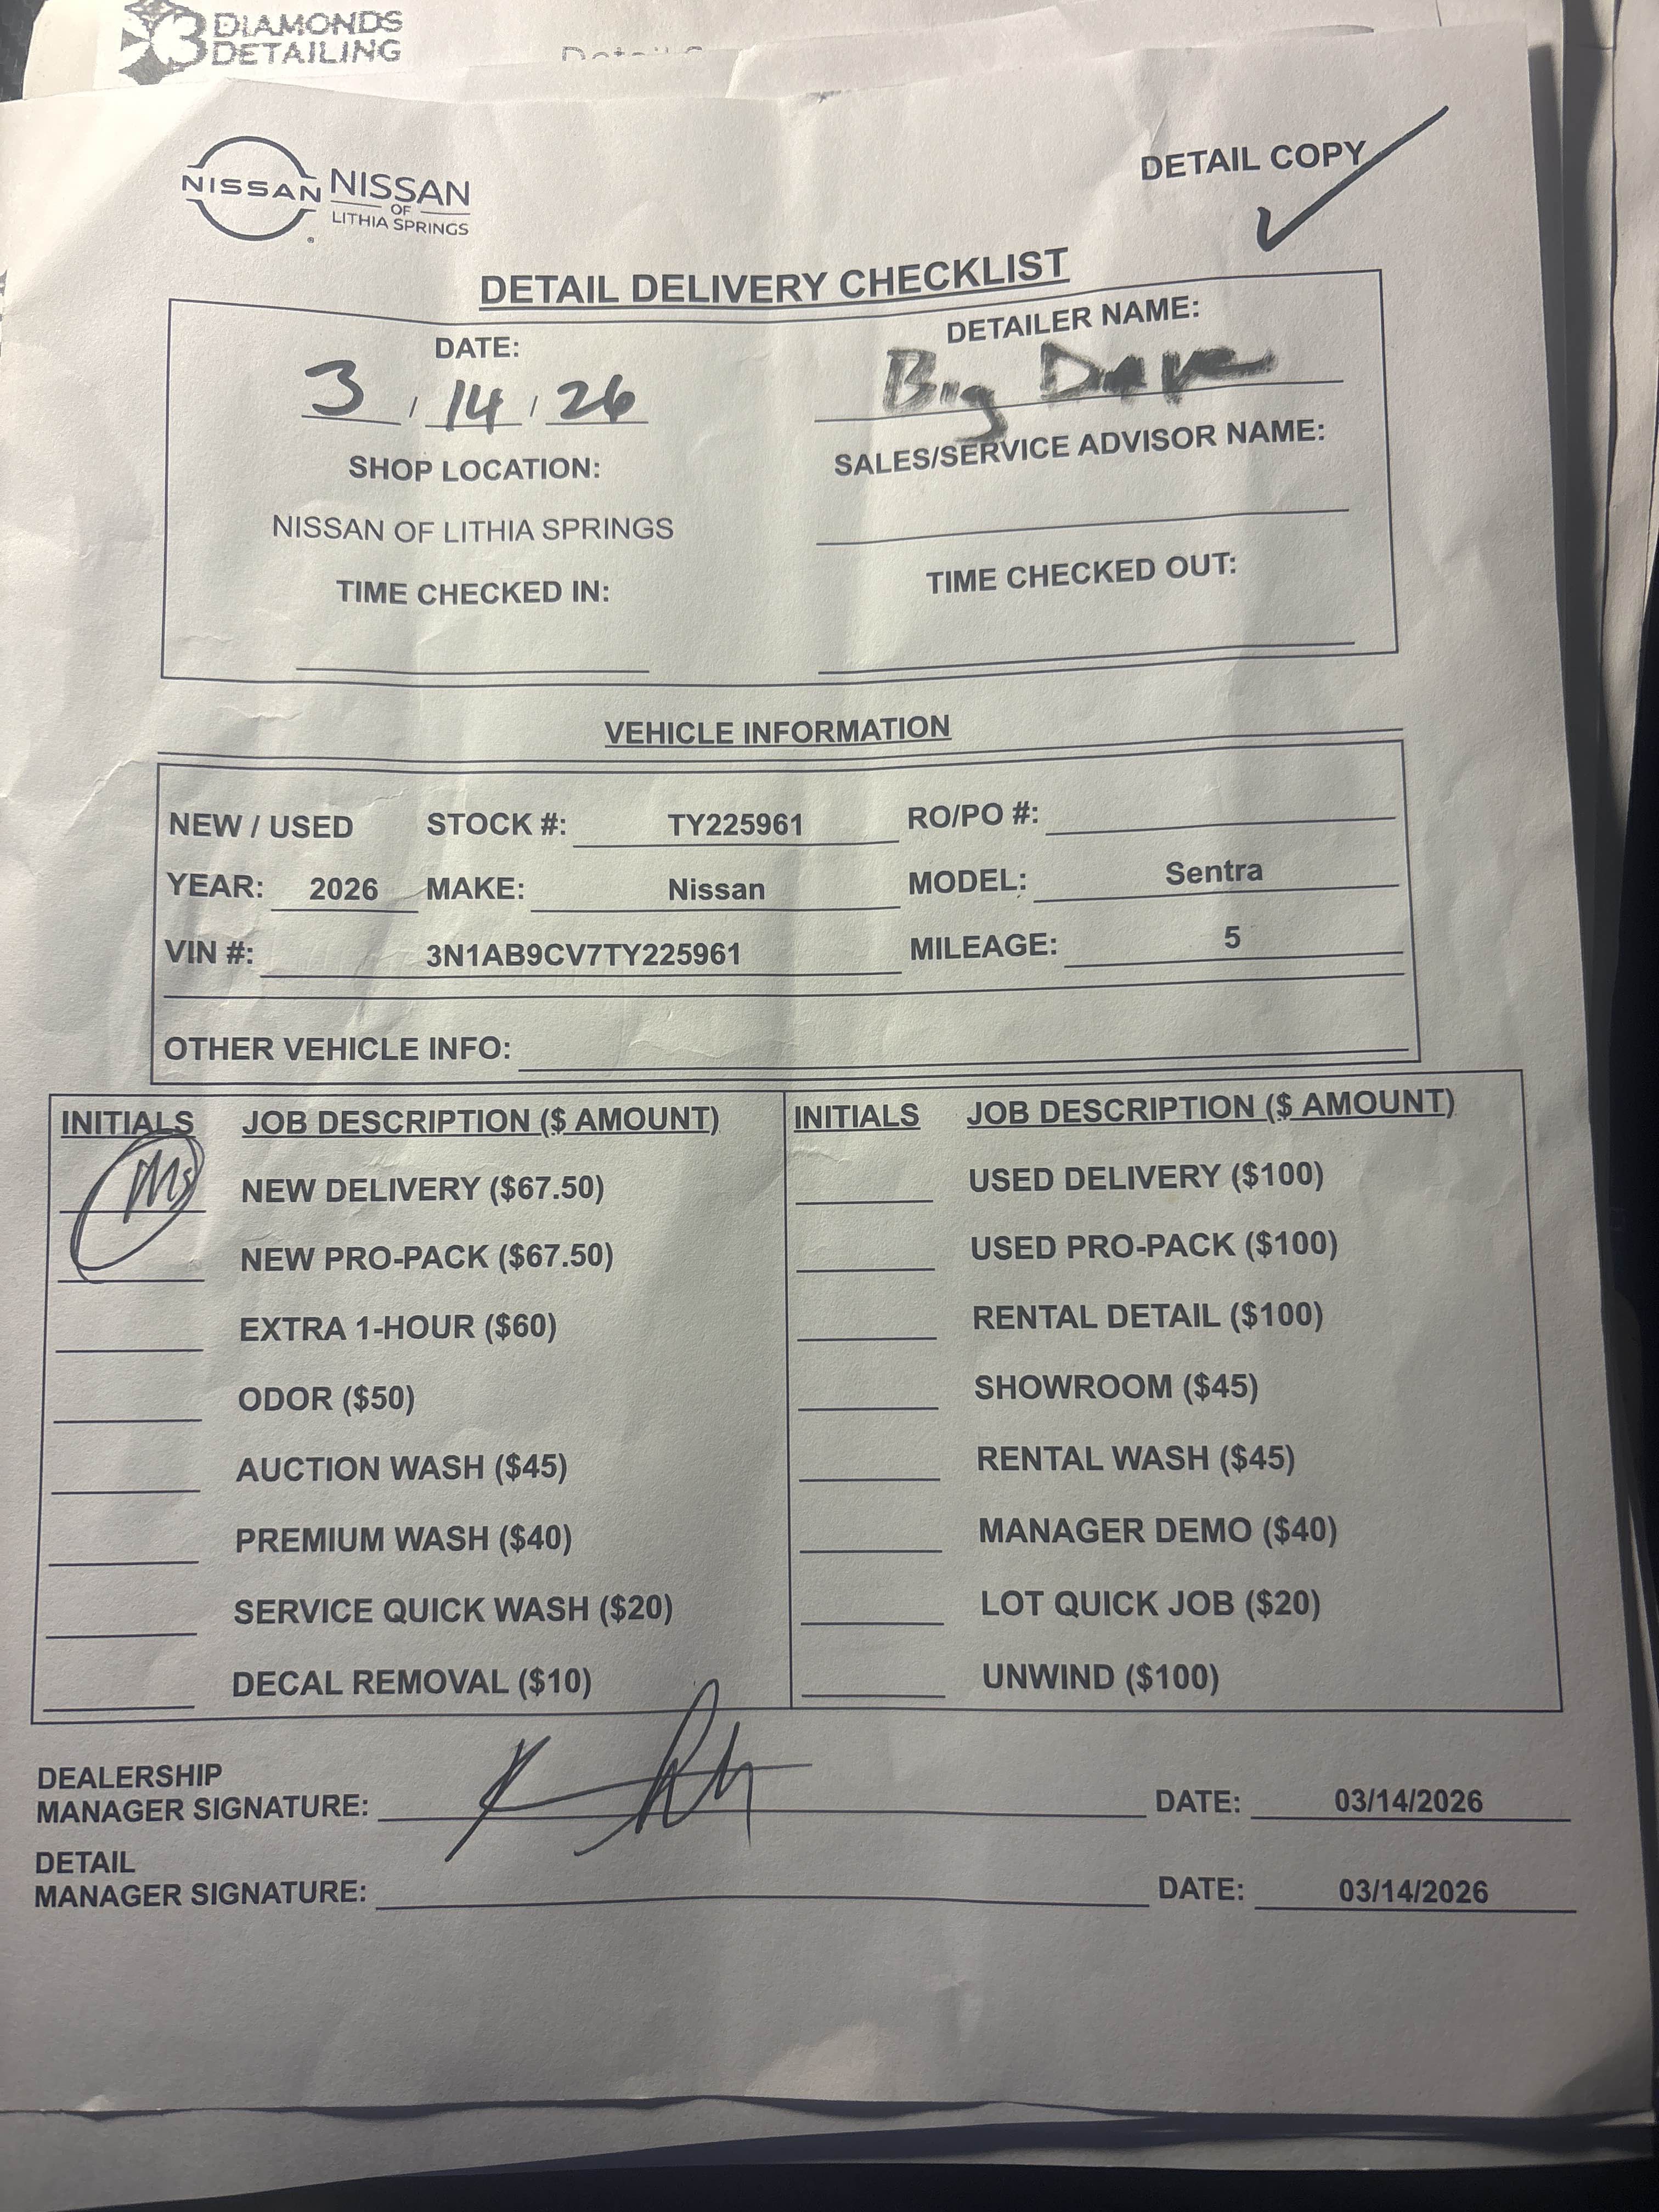 DIAMONDS
DETAILING
NISSAN NISSAN
OF
LITHIA SPRINGS
DETAIL COPY
DETAIL DELIVERY CHECKLIST
DATE:
3 / 14 / 26
DETAILER NAME:
Big Dave
SHOP LOCATION:
SALES/SERVICE ADVISOR NAME:
NISSAN OF LITHIA SPRINGS
TIME CHECKED IN:
TIME CHECKED OUT:
VEHICLE INFORMATION
NEW / USED STOCK #: TY225961 RO/PO #:
YEAR: 2026 MAKE: Nissan MODEL: Sentra
VIN #: 3N1AB9CV7TY225961 MILEAGE: 5
OTHER VEHICLE INFO:
INITIALS JOB DESCRIPTION ($ AMOUNT) INITIALS JOB DESCRIPTION ($ AMOUNT)
NEW DELIVERY ($67.50) USED DELIVERY ($100)
NEW PRO-PACK ($67.50) USED PRO-PACK ($100)
EXTRA 1-HOUR ($60) RENTAL DETAIL ($100)
ODOR ($50) SHOWROOM ($45)
AUCTION WASH ($45) RENTAL WASH ($45)
PREMIUM WASH ($40) MANAGER DEMO ($40)
SERVICE QUICK WASH ($20) LOT QUICK JOB ($20)
DECAL REMOVAL ($10) UNWIND ($100)
DEALERSHIP
MANAGER SIGNATURE: DATE: 03/14/2026
DETAIL
MANAGER SIGNATURE: DATE: 03/14/2026